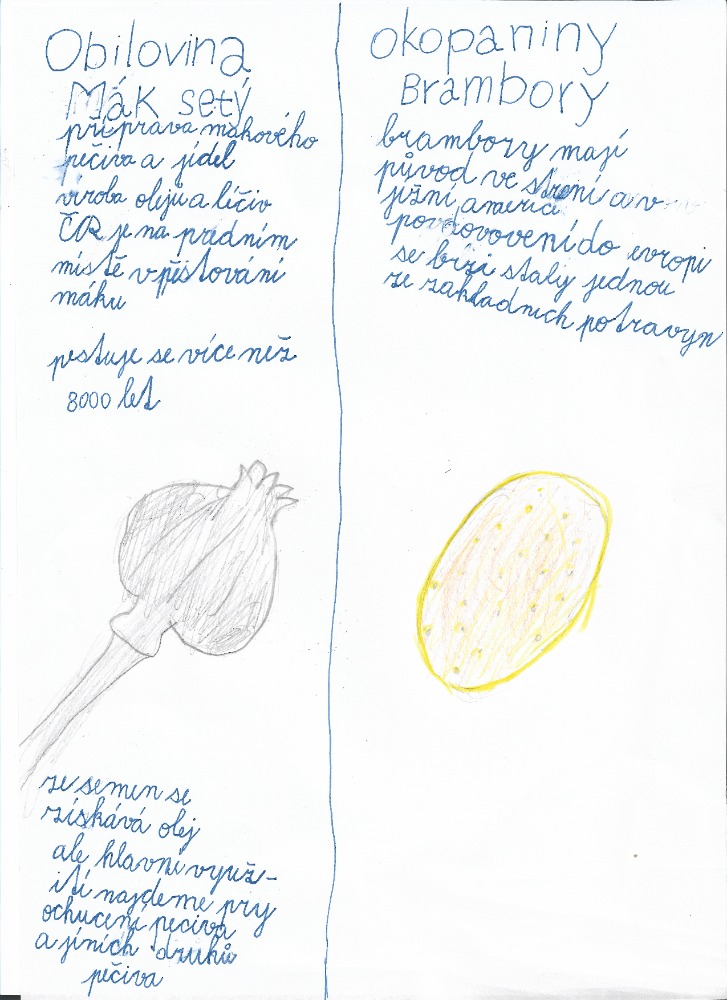 Obilovina
Mák setý
příprava makového
pečiva a jídel
víroba olejů a léčiv
ČR je na předním
místě v pěstování
máku
pestuje se více než
8000 let
ze semen se
získává olej
ale hlavní využ-
ití najdeme pry
ochucení pečiva
a jíních druhů
pečiva
Okopaniny
Brambory
brambory mají
původ ve stření a v
jižní americe
po dovovení do evropi
se brzi staly jednou
ze zakladnich potravyn